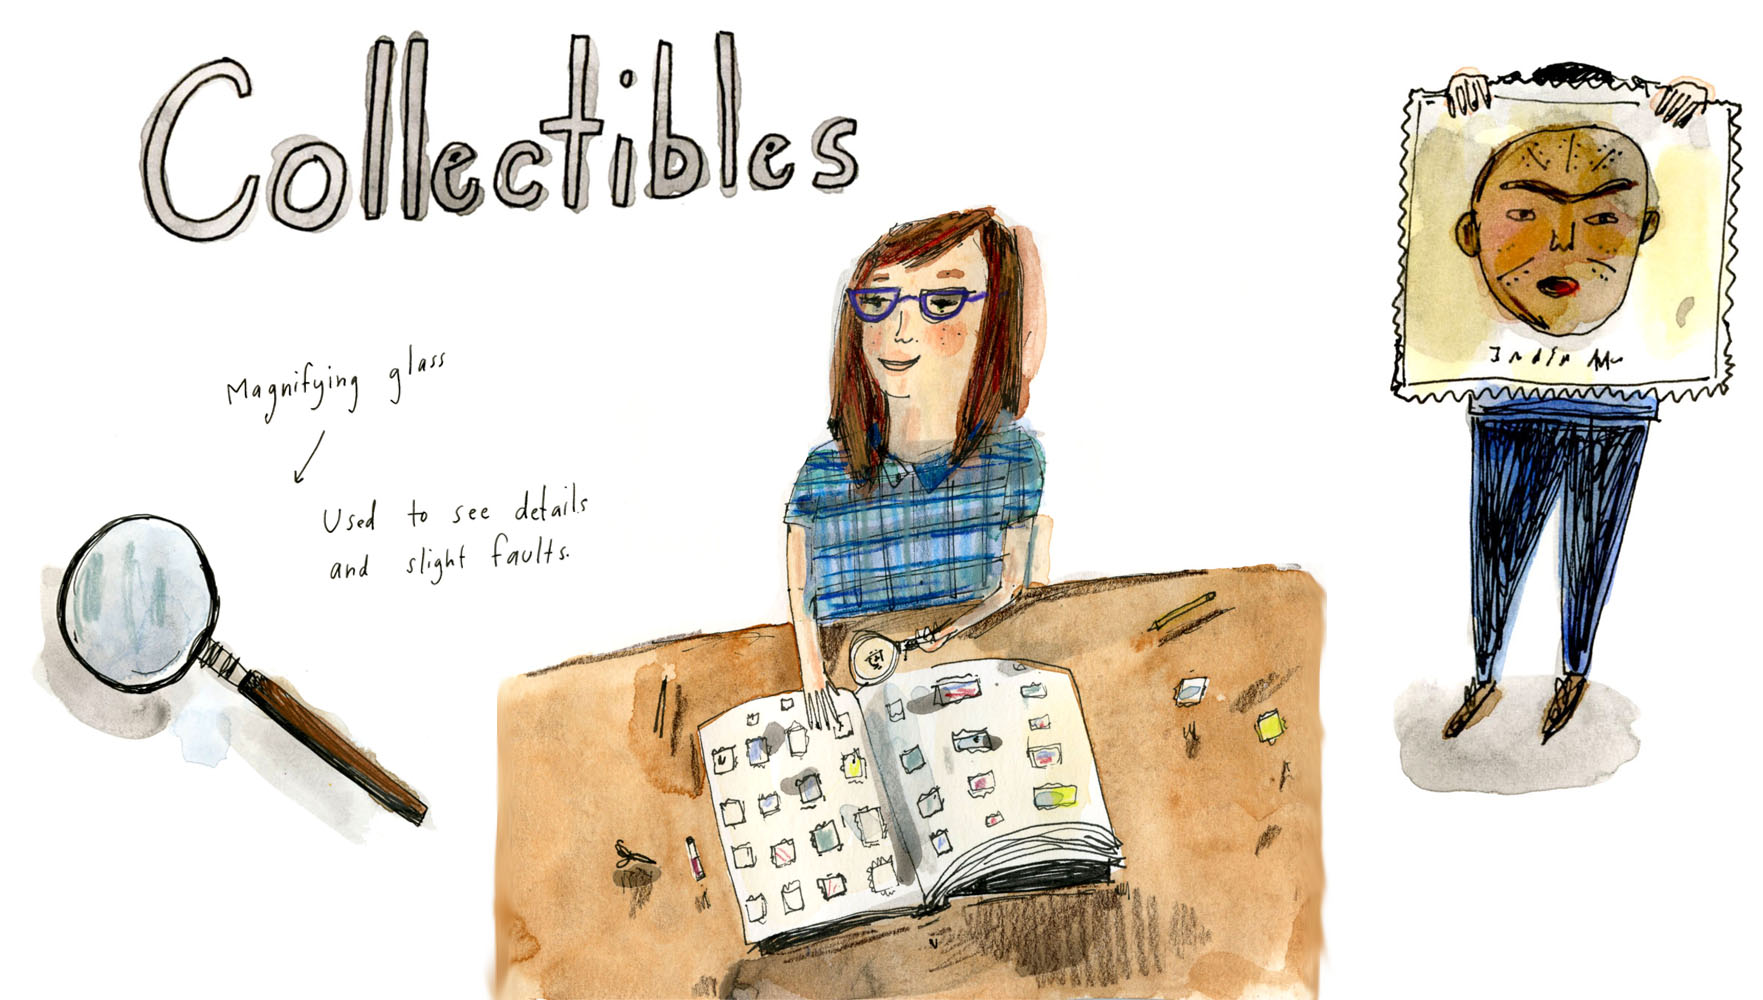 Collectibles
Magnifying glass
Used to see details
and slight faults.